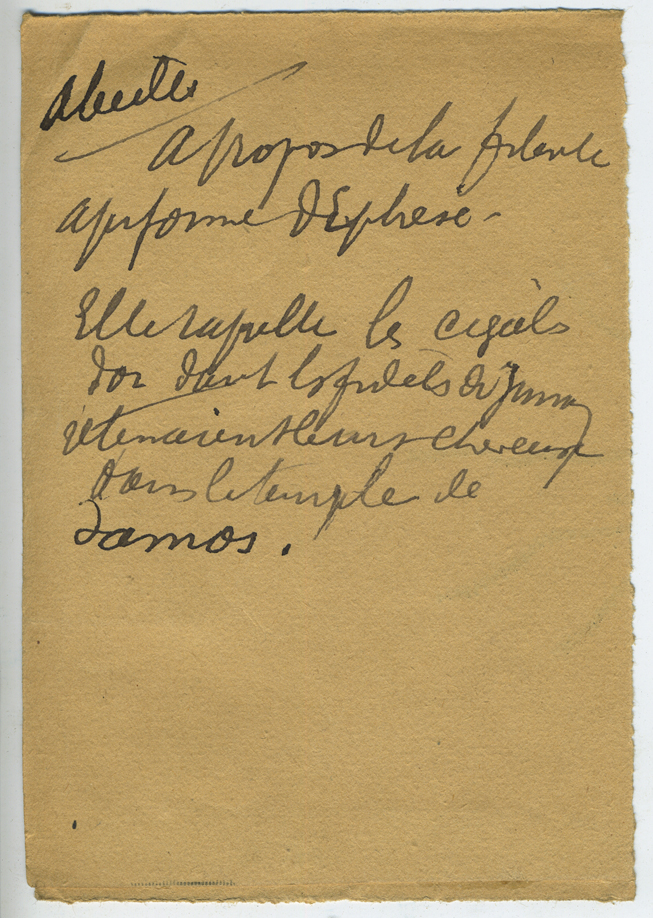 Abeilles
A propos de la
apiforme d'Ephèse -
Elle rapelle les cigales
d'or dont les fidèles de Junon
retenaient leurs cheveux
dans le temple de
Samos.